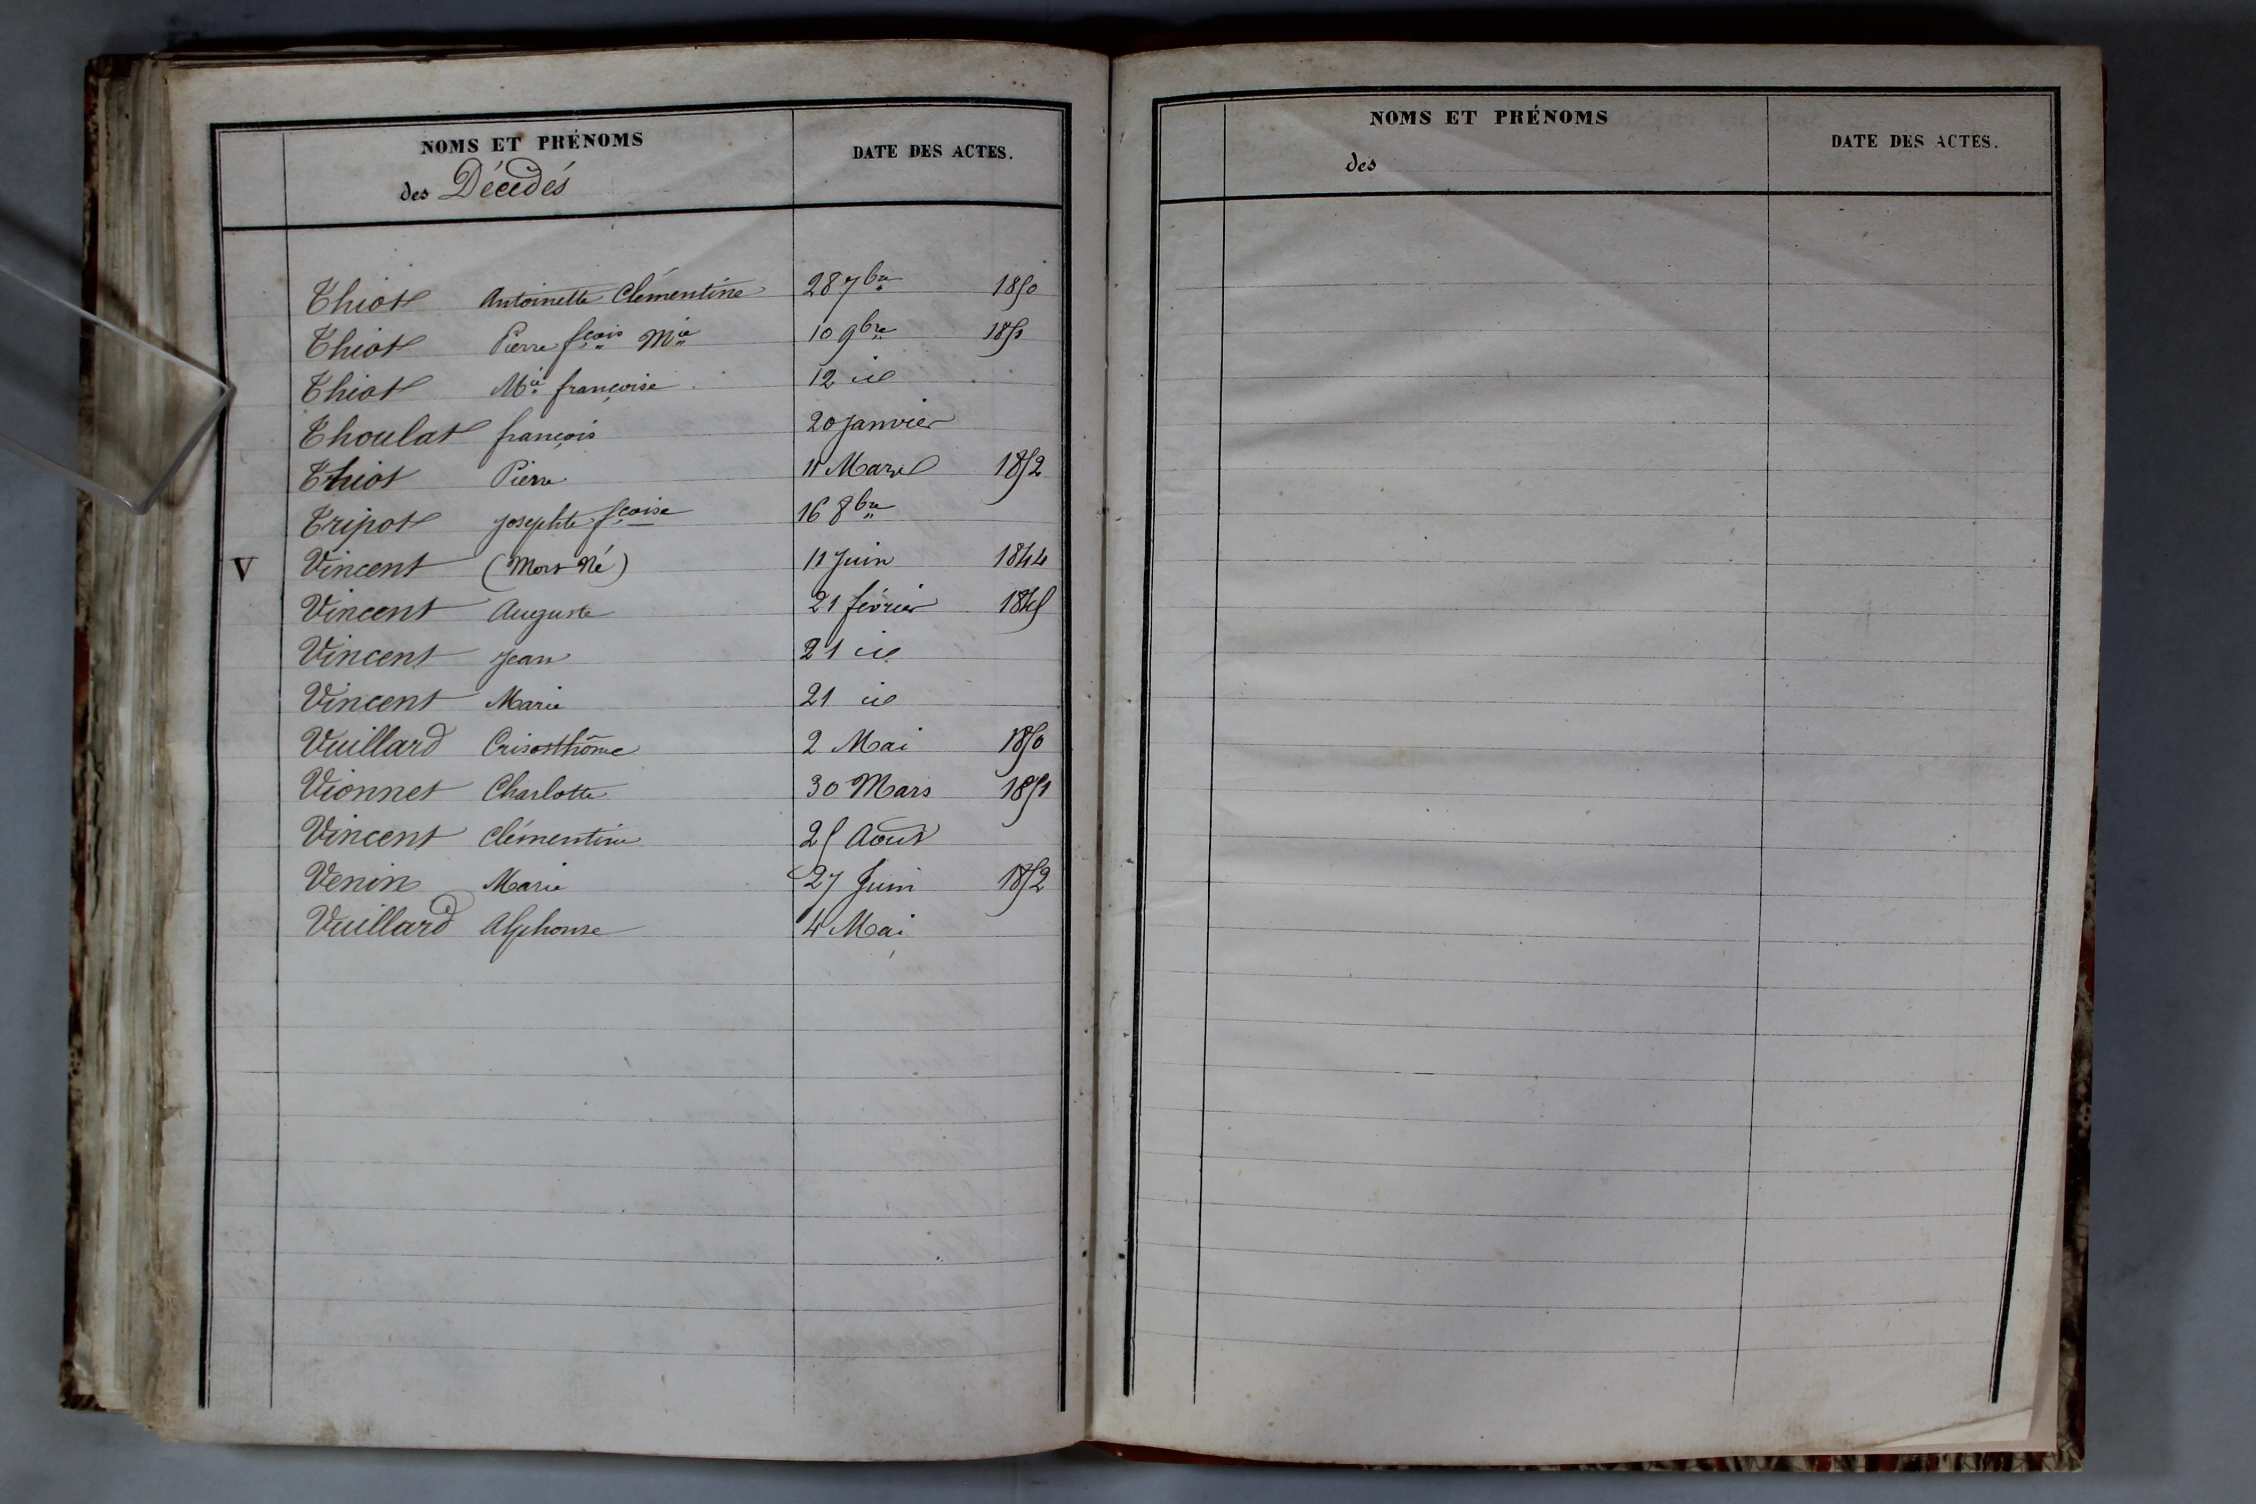 NOMS ET PRÉNOMS
des Décédés
DATE DES ACTES.
Thiot Antoinette Clémentine 28 7bre 1850
Thiot Pierre fçois Mie 10 9bre 1851
Thiot Mie françoise 12 id
Thoulat françois 20 janvier
Thiot Pierre 11 Mars 1852
Tripot Josephte fçoise 16 8bre
V Vincent (Mort Né) 11 Juin 1844
Vincent Auguste 21 février 1845
Vincent Jean 21 id
Vincent Marie 21 id
Vuillard Crisosthôme 2 Mai 1850
Vionnet Charlotte 30 Mars 1851
Vincent Clémentine 25 Août
Venin Marie 27 Juin 1852
Vuillard Alphonse 4 Mai
NOMS ET PRÉNOMS
des
DATE DES ACTES.